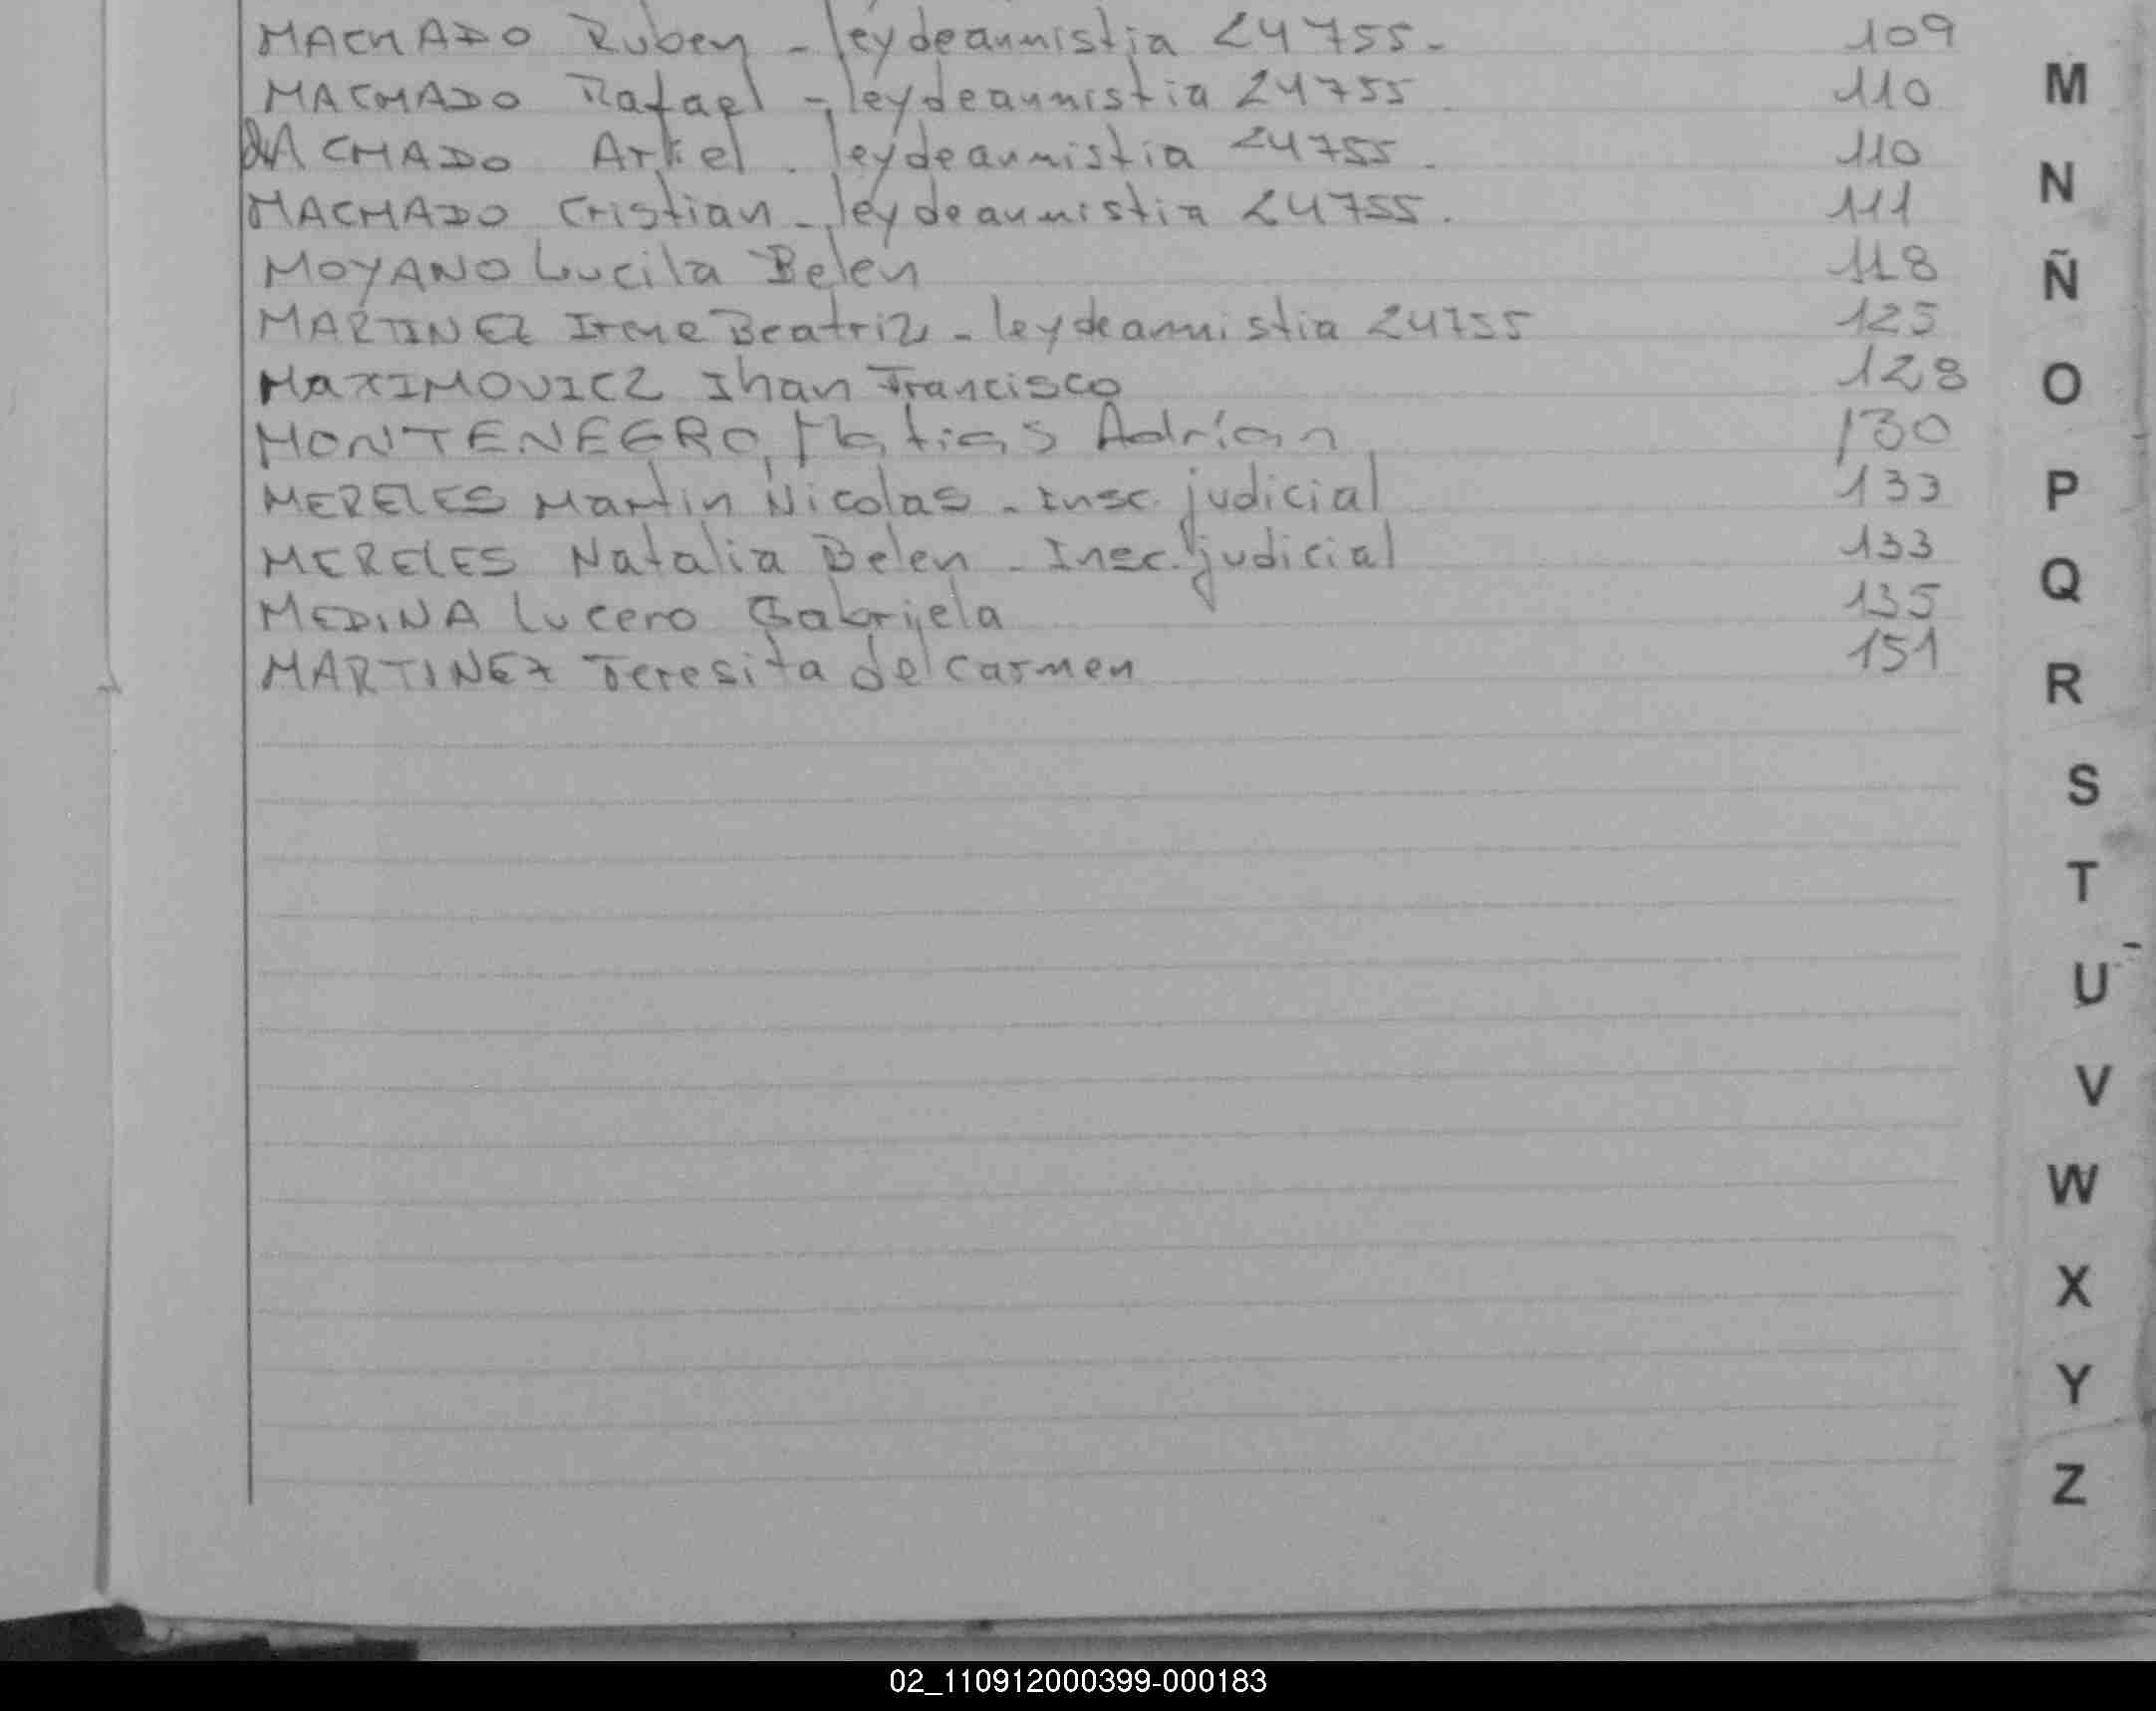 MACHADO Ruben - ley de amnistia 24755- 109
MACHADO Rafael - ley de amnistia 24755 110
MACHADO Ariel - ley de amnistia 24755. 110
MACHADO Cristian - ley de amnistia 24755. 111
MOYANO Lucila Belen 118
MARTINEZ Irene Beatriz - ley de amnistia 24755 125
MAXIMOVICZ Jhan Francisco 128
MONTENEGRO, Matias Adrían 130
MERELES Martin Nicolas - Insc. judicial 133
MERELES Natalia Belen - Insc. judicial 133
MEDINA Lucero Gabriela 135
MARTINEZ Teresita del Carmen 151
M
N
Ñ
O
P
Q
R
S
T
U
V
W
X
Y
Z
02_110912000399-000183